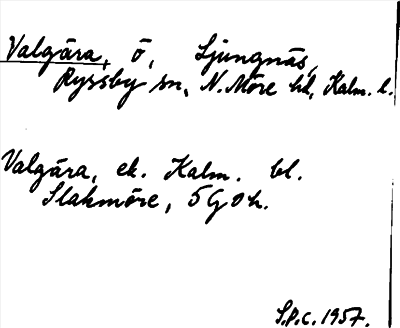 Valgåra, ö, Ljungnäs,
Ryssby sn, N. Möre hd, Kalm. l.
Valgåra, ek. Kalm. bl.
Slakmöre, 5 G o h.
S.P.C. 1957.